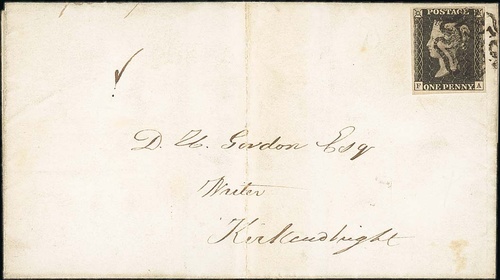 POSTAGE
F A
ONE PENNY
D. H. Gordon Esq
Writer
Kirkcudbright